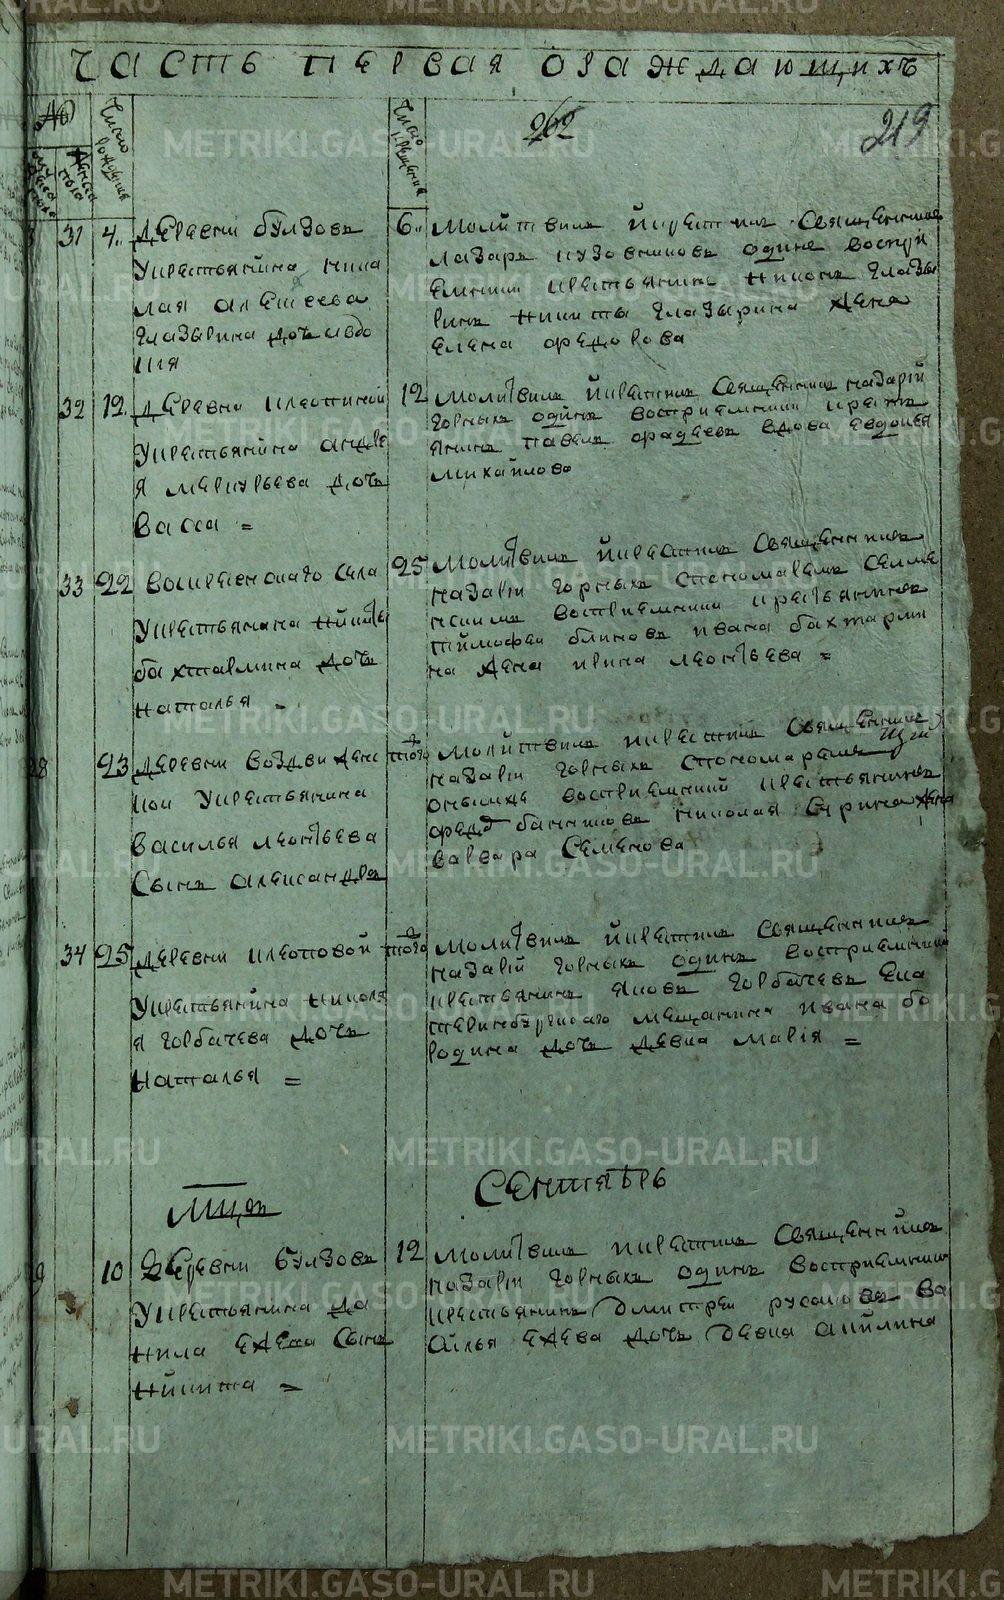 Часть первая ораждающихъ
№
число рождения
число крещения
262
219
мужеска пола
женска пола
31 4. Деревни булзовъ
у крестьянина нико
лая алеѯеева
глазырина дочь авдо
тия
6. Молитвилъ и крестилъ Священникъ
лазарь кузовниковъ одинъ воспри
емники крестьянинъ никонъ глазы
ринъ никиты глазырина жена
елена федорова
32 12 Деревни клеопиной
у крестьянина андре
я меркурьева дочь
Васса =
12 Молитвилъ и крестилъ Священникъ назарій
горныхъ одинъ восприемники кресть
янинъ павелъ фадеевъ вдова евдокья
михайлова
33 22 Воскресенскаго села
у крестьянина никиты
бахтармина дочь
наталья =
25 Молитвилъ и крестилъ Священникъ
назарій горныхъ спономаремъ
восприемники крестьянинъ
тимофей блиновъ ивана бахтарми
на жена ирина леонтьева =
28 23 деревни воздвижен
кой у крестьянина
василья леонтьева
Сынъ александръ
того Молитвилъ и крестилъ Священникъ
назарій горныхъ спономаремъ
восприемники крестьянинъ
федоръ банниковъ николая жена
варвара Семенова
34 25 деревни клеоповой
у крестьянина никола
я горбачева дочь
наталья =
того Молитвилъ и крестилъ Священникъ
назарій горныхъ одинъ восприемники
крестьянинъ яковъ горбачевъ ека
теринбургскаго мещанина ивана бо
родина дочь девка марія =
Мцъ
Сентябрь
10 Деревни булзовъ
у крестьянина да
нила ежева Сынъ
никита =
12 Молитвилъ и крестилъ Священникъ
назарій горныхъ одинъ восприемники
крестьянинъ дмитрей русаковъ ва
силья ежева дочь девка акилина